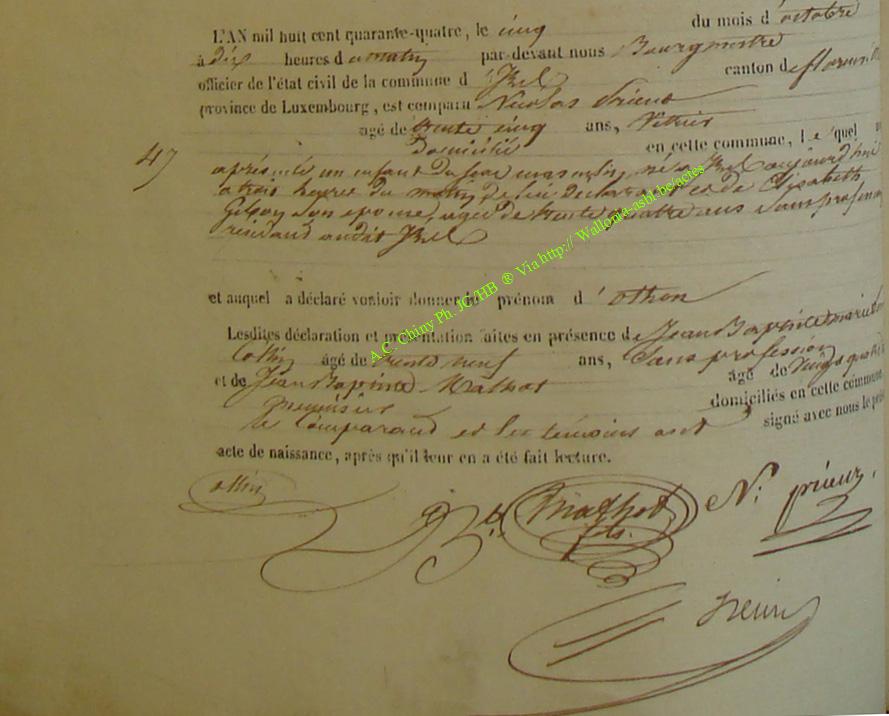 L'AN mil huit cent quarante-quatre, le cinq du mois d'octobre
à dix heures du matin par-devant nous Bourgmestre
officier de l'état civil de la commune d'Izel canton de florenville
province de Luxembourg, est comparu Nicolas Prieur
agé de trente cinq ans, Vitrier
domicilié en cette commune, lequel n
47
a présenté un enfant du sexe masculin, né à Izel aujourd'hui
a trois heures du matin, de lui déclarant et de Elisabeth
Gilson son epouse, agée de trente quatre ans sans profession
residant audit Izel
et auquel a déclaré vouloir donner le prénom d'othon
Lesdites déclaration et présentation faites en présence de Jean Baptiste
Collin agé de trente neuf ans, sans profession
et de Jean Baptiste Mathot agé de vingt quatre
menuisier domiciliés en cette commune
le Comparant et les temoins ont signé avec nous le pré
acte de naissance, après qu'il leur en a été fait lecture.
Mathot
fils.
N. prieur.
A.C. Chiny Ph. JC/HB ® Via http:// Wallonia-asbl-be/actes